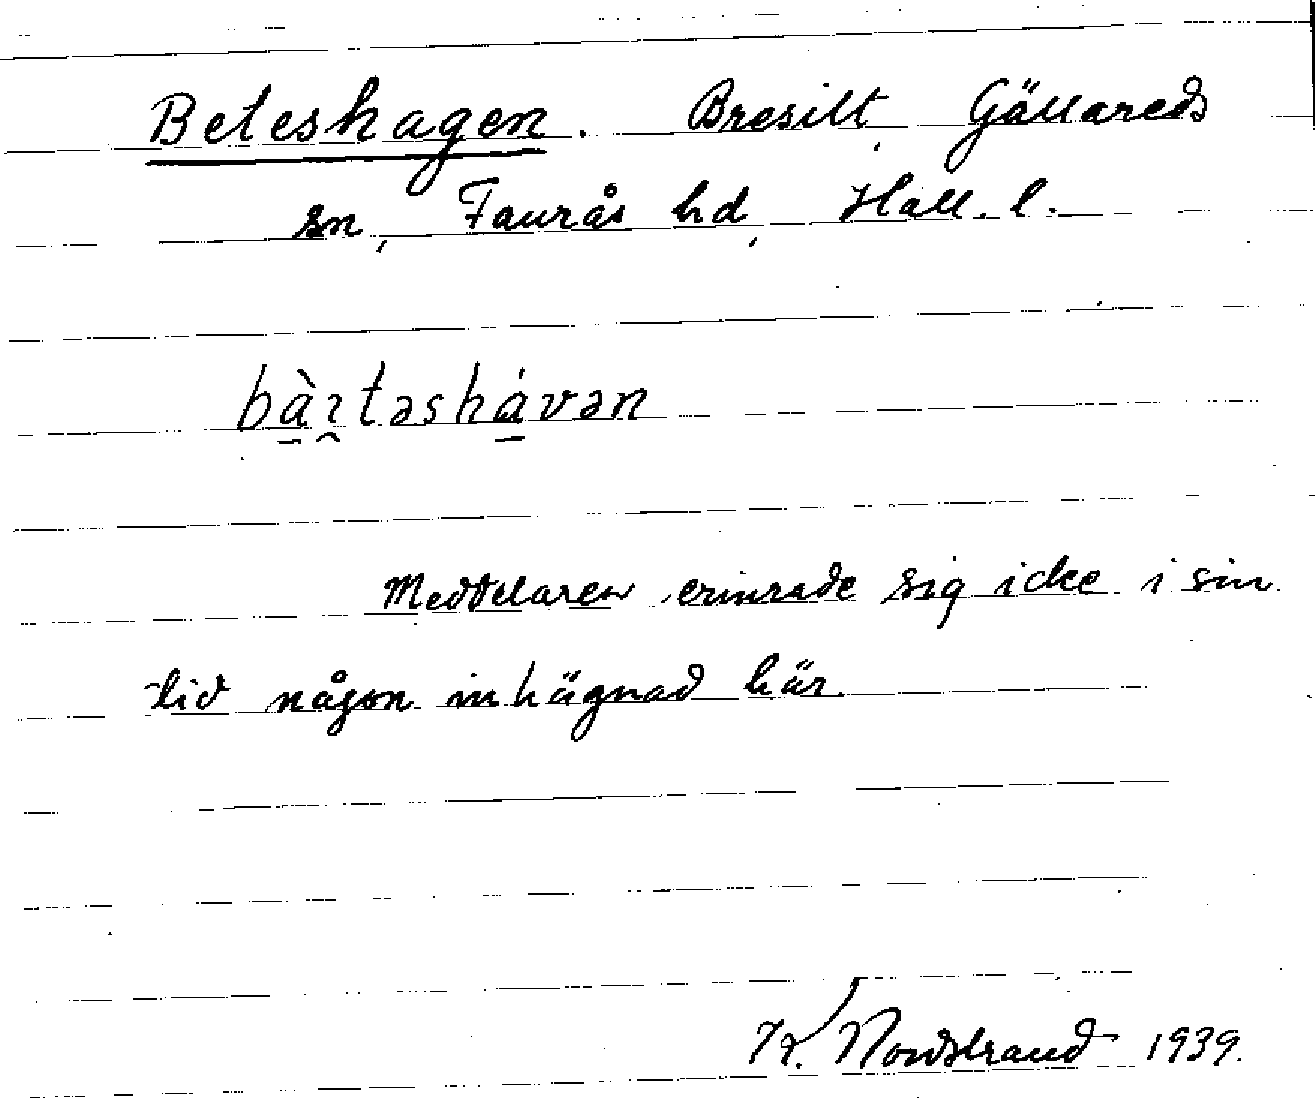 Beteshagen. Bresilt, Gällareds
sn, Faurås hd, Hall. l.
bà̠ı̯təshá̠vən
Meddelaren erinrade sig icke i sin
tid någon inhägnad här.
K. Nordstrand 1939.